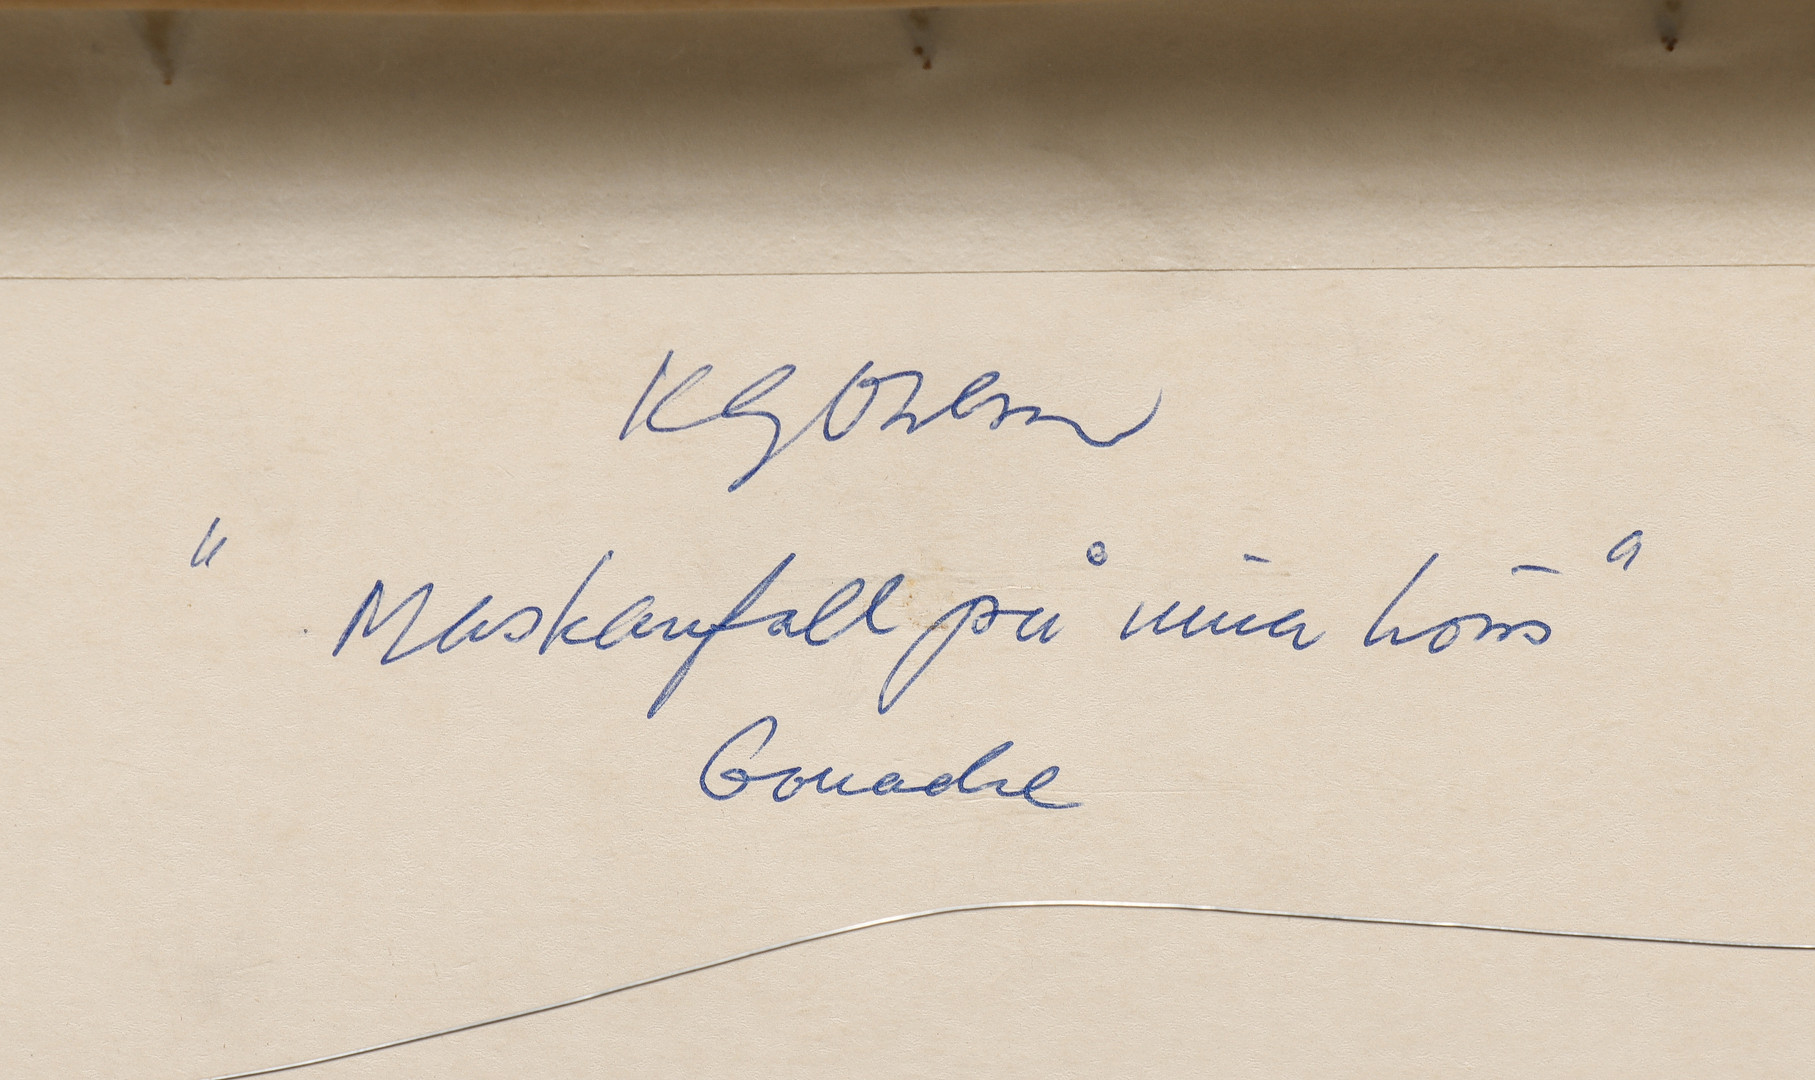 KG Ohlson
"Maskanfall på mina höns"
Gouache